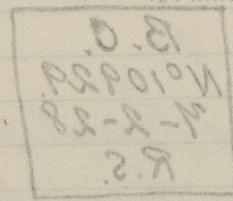 B. O.
No 10929
7-2-28
R.S.